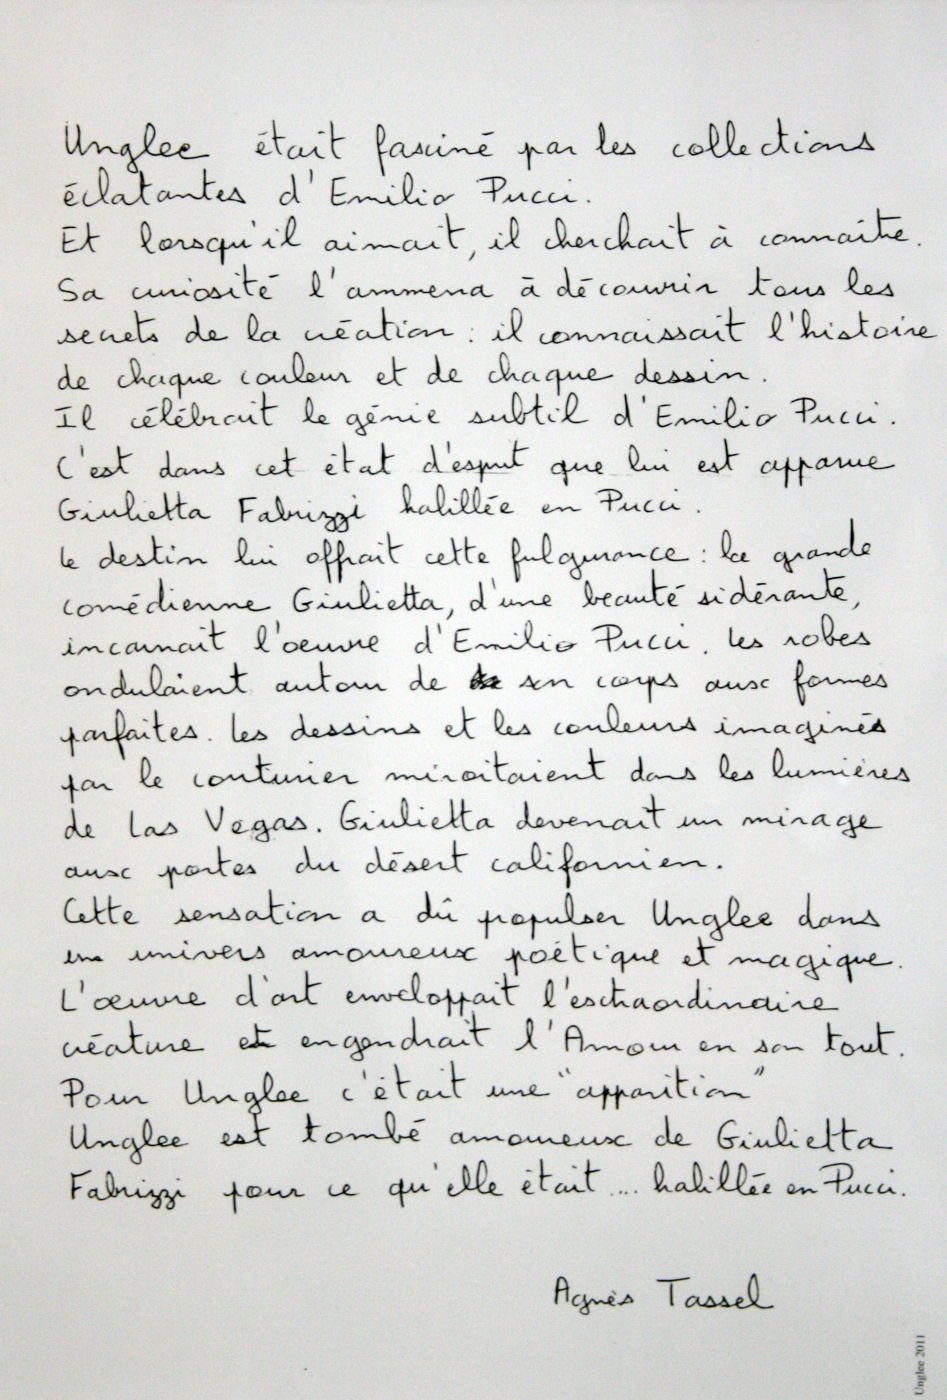 Unglee était fasciné par les collections
éclatantes d'Emilio Pucci.
Et lorsqu'il aimait, il cherchait à connaître.
Sa curiosité l'ammena à découvrir tous les
secrets de la création : il connaissait l'histoire
de chaque couleur et de chaque dessin.
Il célébrait le génie subtil d'Emilio Pucci.
C'est dans cet état d'esprit que lui est apparue
Giulietta Fabrizzi habillée en Pucci.
Le destin lui offrait cette fulgurance : la grande
comédienne Giulietta, d'une beauté sidérante,
incarnait l'oeuvre d'Emilio Pucci. Les robes
ondulaient autour de son corps aux formes
parfaites. Les dessins et les couleurs imaginés
par le couturier miroitaient dans les lumières
de Las Vegas. Giulietta devenait un mirage
aux portes du désert californien.
Cette sensation a dû populser Unglee dans
un univers amoureux poétique et magique.
L'œuvre d'art enveloppait l'extraordinaire
créature et engendrait l'Amour en son tout.
Pour Unglee c'était une "apparition"
Unglee est tombé amoureux de Giulietta
Fabrizzi pour ce qu'elle était .... habillée en Pucci.
Agnès Tassel
Unglee 2011